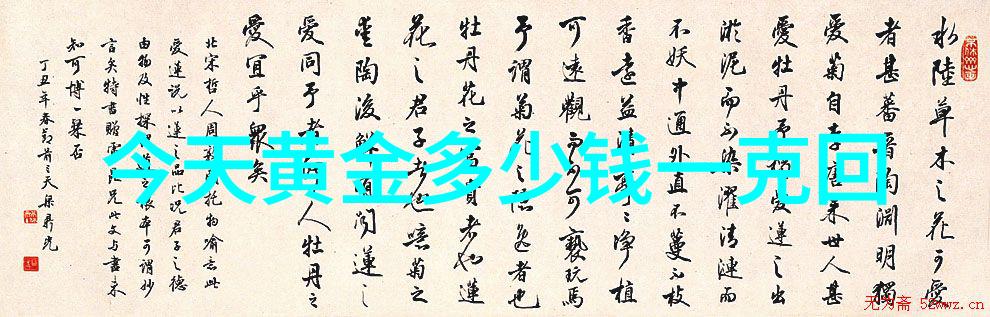 水陸草木之花可愛
者甚蕃晉陶淵明獨
愛菊自李唐来世人甚
愛牡丹予獨愛蓮之出
淤泥而不染濯清漣而
不妖中通外直不蔓不枝
香遠益清亭亭净植
可遠觀而不可褻玩焉
予謂菊花之隱逸者也
牡丹花之富貴者也蓮
花之君子者也噫菊之
愛陶後鮮有聞蓮之
愛同予者何人牡丹之
愛宜乎衆矣
北宋哲人周敦頤托物喻志此
愛蓮説以蓮之品比况君子之德
由物及性探
可謂妙
言矣特書贈
兄此文与畫来
知可博一粲否
丁丑年春節前三天
今天黄金多少钱一克回
无为斋 52wwz.cn